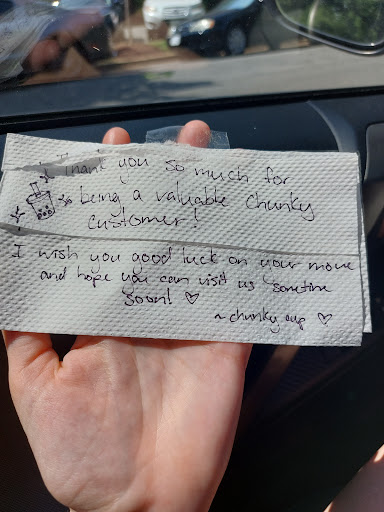 Thank you so much for
being a valuable Chunky
customer!
I wish you good luck on your move
and hope you can visit us sometime
soon! ♡
~chunky cup ♡